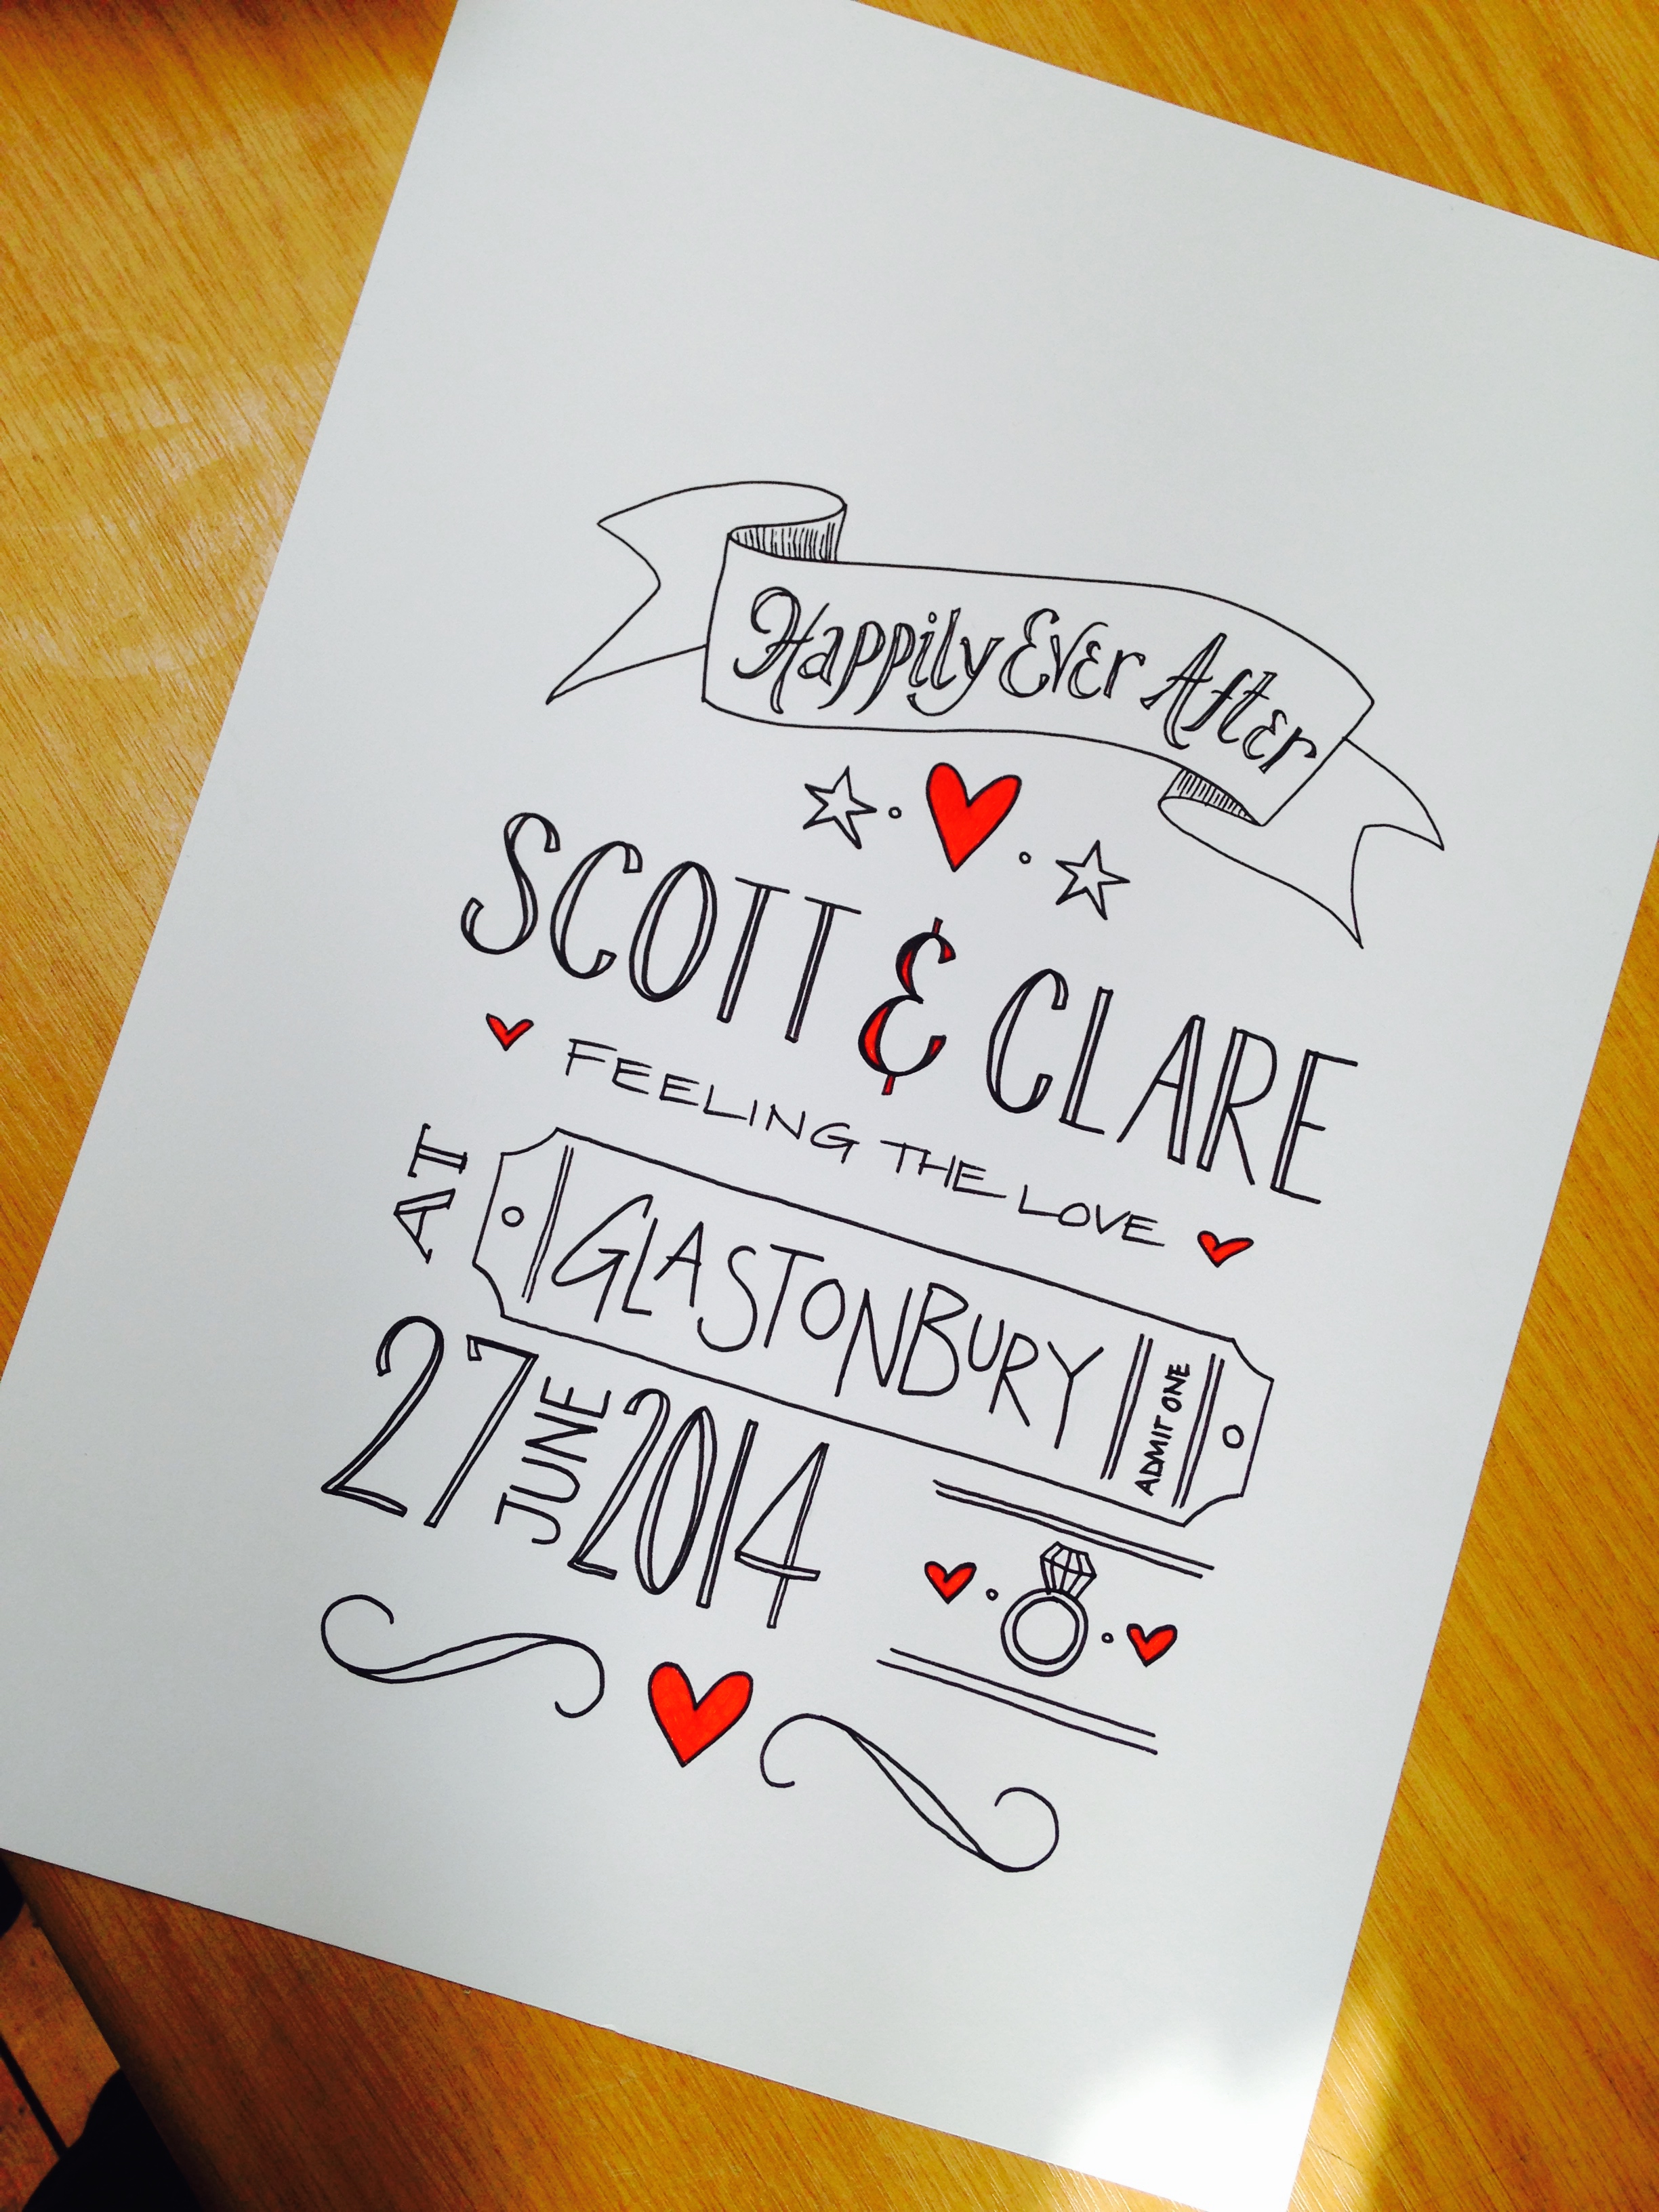 Happily Ever After
SCOTT & CLARE
FEELING THE LOVE
AT
GLASTONBURY
ADMIT ONE
27 JUNE 2014